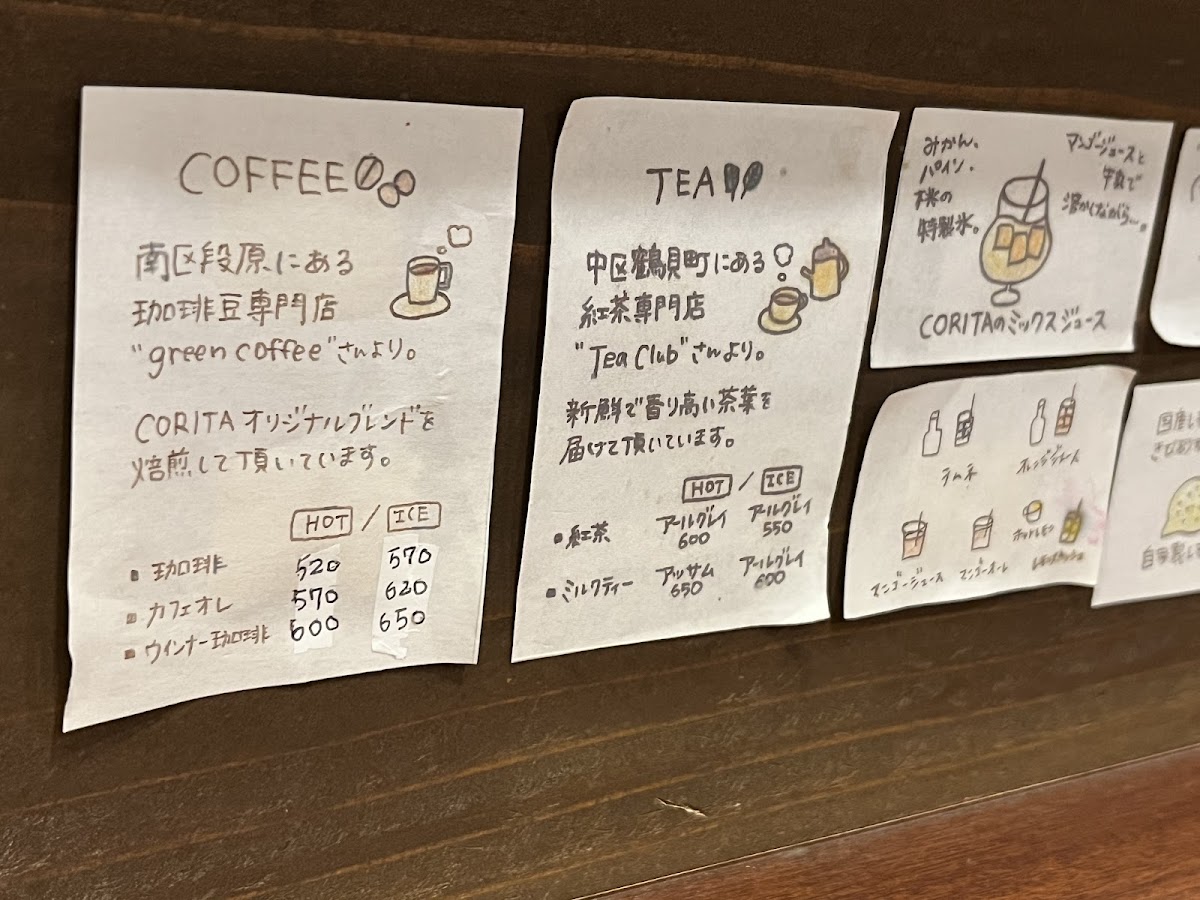 COFFEE
南区段原にある
珈琲豆専門店
"green coffee"さんより。
CORITAオリジナルブレンドを
焙煎して頂いています。
HOT / ICE
■ 珈琲 520 570
■ カフェオレ 570 620
■ ウインナー珈琲 600 650
TEA
中区鶴見町にある
紅茶専門店
"Tea Club"さんより。
新鮮で香り高い茶葉を
届けて頂いています。
HOT / ICE
■ 紅茶 アールグレイ 600 アールグレイ 550
■ ミルクティー アッサム 650 アールグレイ 600
みかん、
パイン、
桃の
特製氷。
マンゴージュースと
牛乳で
溶かしながら...。
CORITAのミックスジュース
ラムネ
オレンジジュース
マンゴージュース
マンゴーオーレ
ホットレモン
レモンスカッシュ
国産レ
自家製